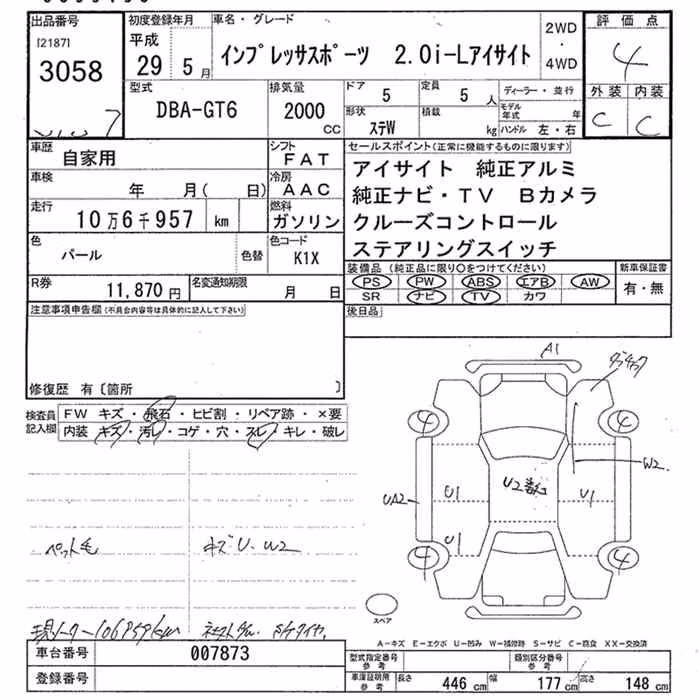 出品番号
[2187]
3058
初度登録年月
平成
29 5月
車名・グレード
インプレッサスポーツ 2.0i-Lアイサイト
2WD
・
4WD
評価点
4
外装 内装
C C
型式
DBA-GT6
排気量
2000
CC
ドア
5
定員
5人
形状
ステW
積載
kg
ディーラー・並行
モデル年式 年
ハンドル 左・右
車歴
自家用
シフト
FAT
車検
年 月( 日)
冷房
AAC
走行
10万6千957 km
燃料
ガソリン
色
パール
色替
色コード
K1X
R券
11,870円
名変通知期限
月 日
セールスポイント(正常に機能するものに限ります)
アイサイト 純正アルミ
純正ナビ・TV Bカメラ
クルーズコントロール
ステアリングスイッチ
装備品(純正品に限り○をつけてください)
PS PW ABS エアB AW
SR ナビ TV カワ
新車保証書
有・無
後日品
注意事項申告欄(不具合内容等は具体的に記入して下さい)
修復歴 有〔箇所 〕
検査員記入欄
FW キズ・飛石・ヒビ割・リペア跡・×要
内装 キズ・汚レ・コゲ・穴・スレ・キレ・破レ
ペット毛
キズ U・W2
A1
4 4
W2
UA2
U1
U2
U1
U1
4 4
スペア
A-キズ E-エクボ U-凹み W-補修跡 S-サビ C-腐食 XX-交換済
車台番号
007873
登録番号
型式指定番号
参考
類別区分番号
参考
車庫証明用
参考
長さ 446 cm
幅 177 cm
高さ 148 cm